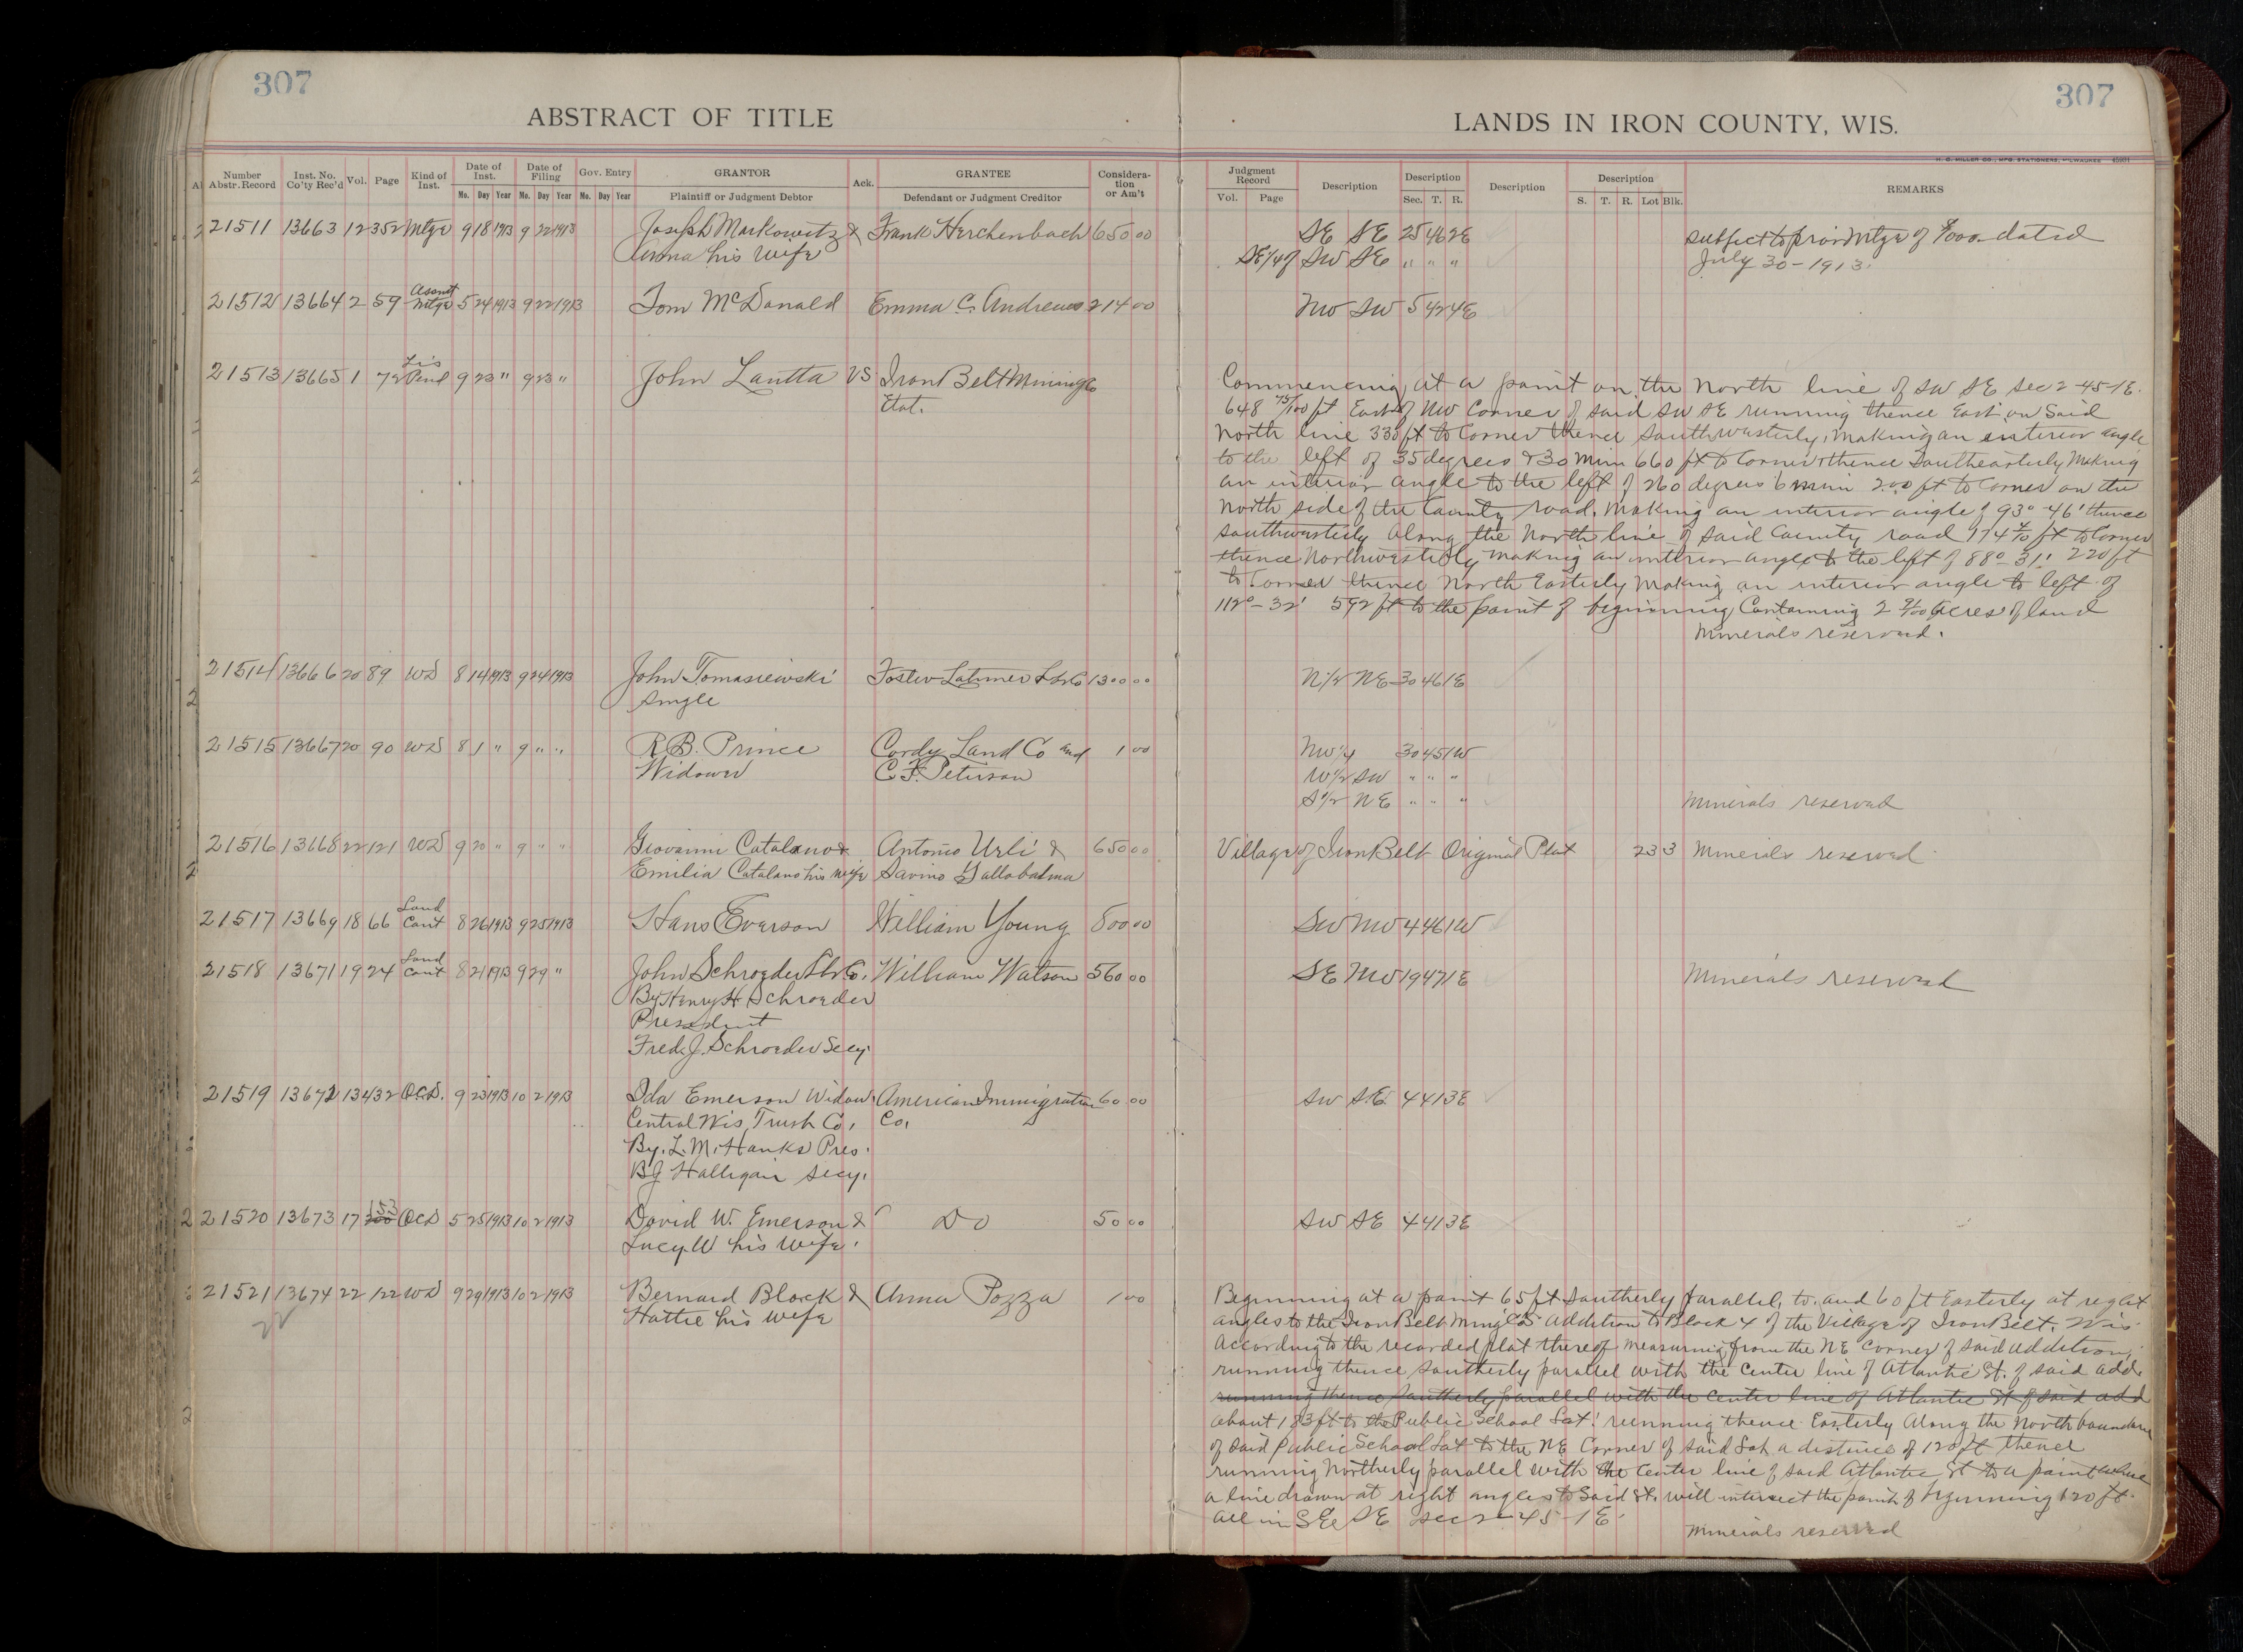 307
307
ABSTRACT OF TITLE
LANDS IN IRON COUNTY, WIS.
H. C. MILLER CO., MFG. STATIONERS, MILWAUKEE
Number Abstr. Record Inst. No. Co'ty Rec'd Vol. Page Kind of Inst. Date of Inst. Mo. Day Year Date of Filing Mo. Day Year Gov. Entry Mo. Day Year GRANTOR Plaintiff or Judgment Debtor Ack. GRANTEE Defendant or Judgment Creditor Considera-tion or Am't
Judgment Record Vol. Page Description Description Sec. T. R. Description Description S. T. R. Lot Blk. REMARKS
21511 13663 12 352 Mtge 9 18 1913 9 22 1913 Joseph Markowitz & Frank Herchenbach 650 00 SE SE 25 46 2E subject to prior Mtge of $1000. dated
Anna his wife SE 1/4 of SW SE " " " July 30-1913.
21512 13664 2 59 Assmt Mtge 5 24 1913 9 22 1913 Tom McDonald Emma C. Andrews 214 00 NW SW 5 42 4E
21513 13665 1 72 Lis Pend 9 23 " 9 23 " John Lantta VS Iron Belt Mining Co
Etal.
Commencing at a point on the North line of SW SE sec 2-45-1E.
648 75/100 ft East of NW Corner of said SW SE running thence East on Said
North line 330 ft to Corner thence Southwesterly, making an interior angle
to the left of 35 degrees & 30 min 660 ft to Corner thence Southeasterly Making
an interior angle to the left of 260 degrees 6 min 200 ft to Corner on the
North side of the County road, Making an interior angle of 93° 46' thence
southwesterly along the North line of said County road 174 4/10 ft to Corner
thence Northwesterly making an interior angle to the left of 88°-31' 220 ft
to Corner thence North Easterly Making an interior angle to left of
112°-32' 592 ft to the point of beginning Containing 2 acres of land
Minerals reserved.
21514 13666 20 89 WD 8 14 1913 9 24 1913 John Tomasiewski Foster Latimer Lbr Co 1300 00 N 1/2 NE 30 46 1E
Single
21515 13667 20 90 WD 8 1 " 9 " " R.B. Prince Cordy Land Co and 1 00 NW 1/4 30 45 1W
Widower C.F. Peterson W 1/2 SW " " "
S 1/2 NE " " " Minerals reserved
21516 13668 22 121 WD 9 20 " 9 " " Giovanni Catalano & Antonio Urli & 650 00 Village of Iron Belt Original Plat 23 3 Minerals reserved
Emilia Catalano his wife Savino Gallobalma
21517 13669 18 66 Land Cont 8 26 1913 9 25 1913 Hans Everson William Young 800 00 SW NW 4 46 1W
21518 13671 19 24 Land Cont 8 21 1913 9 29 " John Schroeder Lbr Co. William Watson 560 00 SE NW 19 47 1E Minerals reserved
By Henry H Schroeder
President
Fred. J. Schroeder Secy.
21519 13672 13 432 QCD. 9 23 1913 10 2 1913 Ida Emerson Widow, American Immigration 60 00 SW S.E. 4 41 3E
Central Wis. Trust Co, Co,
By. L.M. Hanks Pres.
BJ Halligan Secy.
21520 13673 17 153 QCD 5 25 1913 10 2 1913 David W. Emerson & Do 50 00 SW SE 4 41 3E
Lucy W his wife.
21521 13674 22 122 WD 9 29 1913 10 2 1913 Bernard Block & Anna Pozza 1 00
Hattie his wife
Beginning at a point 65 ft Southerly parallel, to, and 60 ft Easterly at right
angles to the Iron Belt Ming Co's addition to Block 4 of the Village of Iron Belt, Wis
According to the recorded plat thereof measuring from the NE corner of said addition;
running thence southerly parallel with the center line of Atlantic St. of said add.
running thence Southerly parallel with the center line of Atlantic St of said add
about 183 ft to the Public School Lot; running thence Easterly along the North boundary
of said Public School Lot to the NE Corner of said Lot a distance of 120 ft thence
running Northerly parallel with the center line of said Atlantic St to a point where
a line drawn at right angles to said St. will intersect the point of beginning 120 ft.
all in SE SE sec 2-45-1E.
Minerals reserved